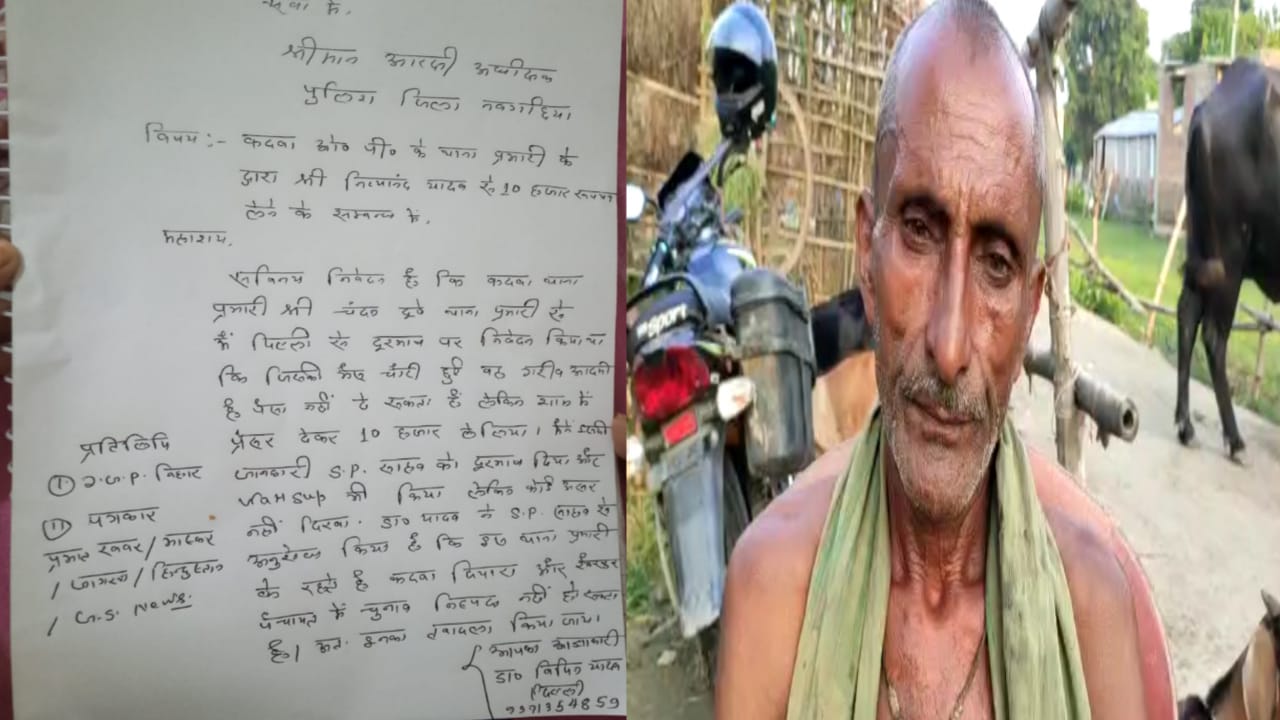 सेवा में,
श्रीमान आरक्षी अधीक्षक
पुलिस जिला नवगछिया
विषय :- कदवा ओ० पी० के थाना प्रभारी के
द्वारा श्री नित्यानंद यादव से 10 हजार रूपया
लेने के सम्बन्ध में.
महाशय,
सविनय निवेदन है कि कदवा थाना
प्रभारी श्री चंदन दूबे थाना प्रभारी से
मैं दिल्ली से दूरभाष पर निवेदन किया था
कि जिसकी भैंस चोरी हुई वह गरीब आदमी
है पैसा नहीं दे सकता है लेकिन शाम में
प्रेसर देकर 10 हजार ले लिया। मैंने इसकी
जानकारी S.P. साहब को दूरभाष दिया और
भी किया लेकिन कोई असर
नहीं दिखा. डा० यादव ने S.P. साहब से
अनुरोध किया है कि इस थाना प्रभारी
के रहते है कदवा दियारा और
पंचायत में चुनाव निष्पक्ष नहीं हो सकता
है। अतः इनका तबादला किया जाय।
प्रतिलिपि
① D.G.P. बिहार
⑪ पत्रकार
प्रभात खबर / भास्कर
/ जागरण / हिन्दुस्तान
/ G.S. News.
आपका आज्ञाकारी
डा० विपिन यादव
(दिल्ली)
9971354859
Sport